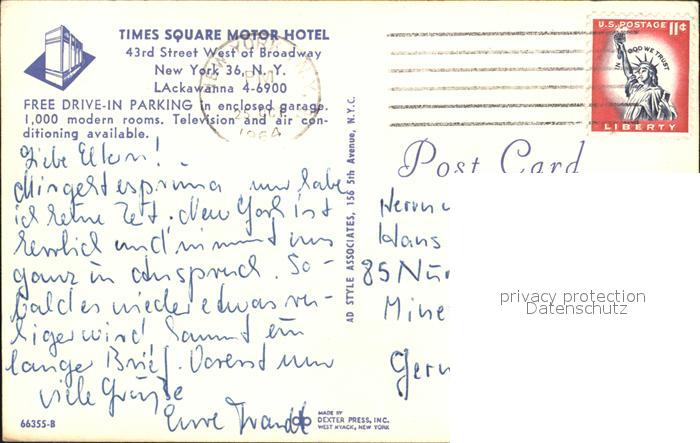 TIMES SQUARE MOTOR HOTEL
43rd Street West of Broadway
New York 36, N. Y.
LAckawanna 4-6900
FREE DRIVE-IN PARKING in enclosed garage.
1,000 modern rooms. Television and air con-
ditioning available.
NEW YORK, N.Y.
1964
U.S. POSTAGE 11¢
IN GOD WE TRUST
LIBERTY
Post Card
Liebe Eltern!
nur habe
ich keine Zeit. New York ist
herrlich und nimmt uns
ganz in Anspruch. So-
bald es wieder etwas ru-
higer wird kommt ein
langer Brief. Vorerst nur
viele Grüße
Eure
Herrn
Hans
85 Nür
Germ
AD STYLE ASSOCIATES, 156 5th Avenue, N.Y.C.
privacy protection
Datenschutz
66355-B
MADE BY
DEXTER PRESS, INC.
WEST NYACK, NEW YORK